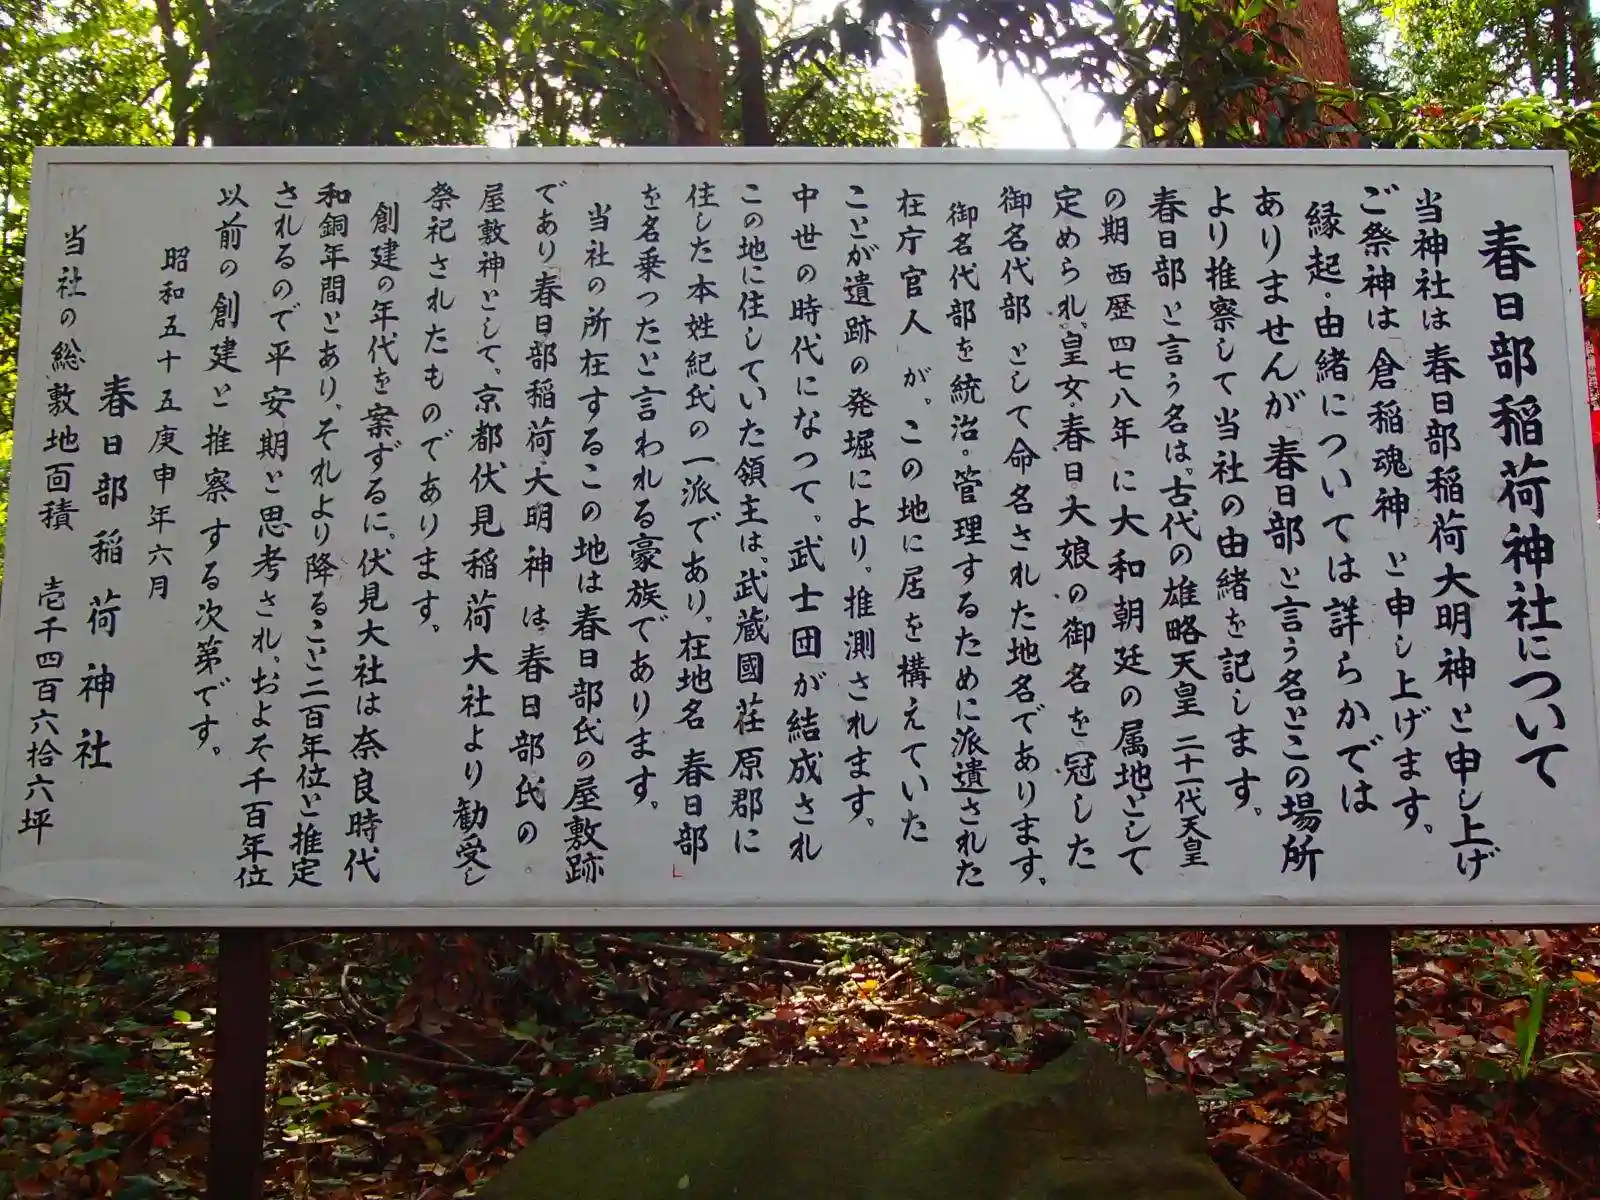 春日部稲荷神社について
当神社は春日部稲荷大明神と申し上げ
ご祭神は「倉稲魂神」と申し上げます。
縁起・由緒については詳らかでは
ありませんが「春日部」と言う名とこの場所
より推察して当社の由緒を記します。
春日部と言う名は。古代の雄略天皇 二十一代天皇
の期 西歴四七八年に大和朝廷の属地として
定められ、皇女・春日大娘の御名を冠した
御名代部として命名された地名であります。
御名代部を統治。管理するために派遣された
在庁官人 が。この地に居を構えていた
ことが遺跡の発堀により。推測されます。
中世の時代になつて。武士団が結成され
この地に住していた領主は、武蔵國荏原郡に
住した本姓紀氏の一派であり。在地名 春日部」
を名乗つたと言われる豪族であります。
当社の所在するこの地は春日部氏の屋敷跡
であり「春日部稲荷大明神 は、春日部氏の
屋敷神として、京都伏見稲荷大社より勧受し
祭祀されたものであります。
創建の年代を案ずるに。伏見大社は奈良時代
和銅年間とあり、それより降ること二百年位と推定
されるので平安期と思考され。およそ千百年位
以前の創建と推察する次第です。
昭和五十五庚申年六月
春日部稲荷神社
当社の総敷地面積 壱千四百六拾六坪